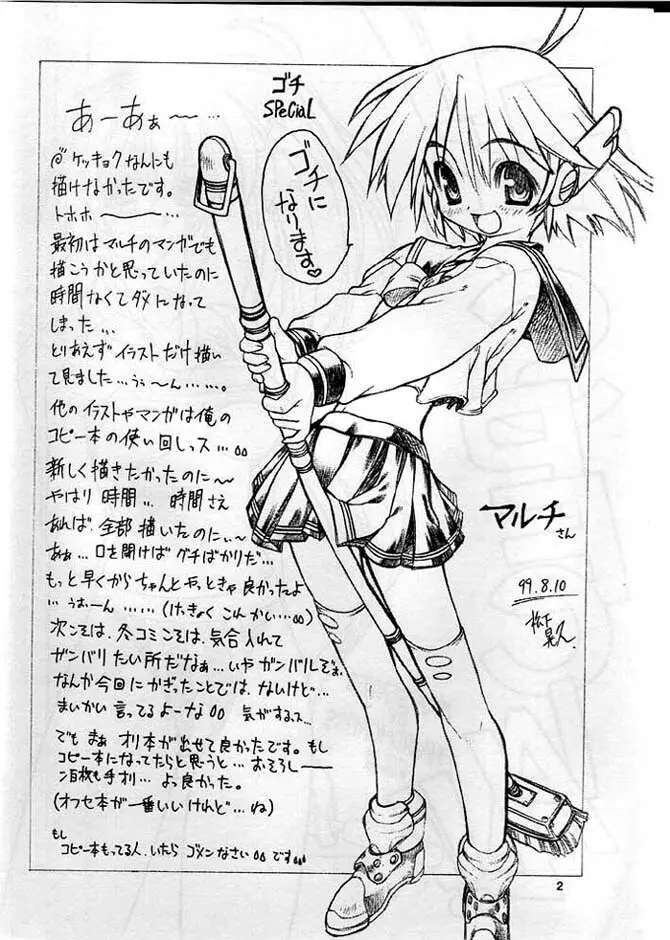 ゴチ
SPeCiaL
あーあぁ〜…
ゴチに
なります。♡
ケッキョクなんにも
描けなかったです。
トホホ〜…
最初はマルチのマンガでも
描こうかと思っていたのに
時間なくてダメになって
しまった…
とりあえずイラストだけ描い
て見ました…うぅ〜ん……。
他のイラストやマンガは俺の
コピー本の使い回しっス…
新しく描きたかったのに〜
やはり時間…時間さえ
あれば、全部描いたのにぃ〜
あぁ…口を開けばグチばかりだ…
もっと早くからちゃんとやっときゃ良かったよ
…うおーん……(けっきょくこんかい…)
次こそは、冬コミこそは、気合入れて
ガンバリたい所だなぁ…いやガンバルぞぉ、
なんか今回にかぎったことでは、ないけど…
まいかい言ってるよーな 気がするっス…
でもまぁオリ本が出せて良かったです。もし
コピー本になってたらと思うと…おそろし〜
百枚も手オリ…よっ良かった。
(オフセ本が一番いいけれど…ね)
もし
コピー本もってる人、いたらゴメンなさい です
マルチさん
99.8.10
2